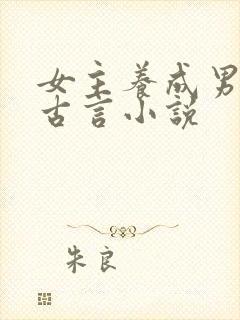 女主养成男
古言小说
朱良